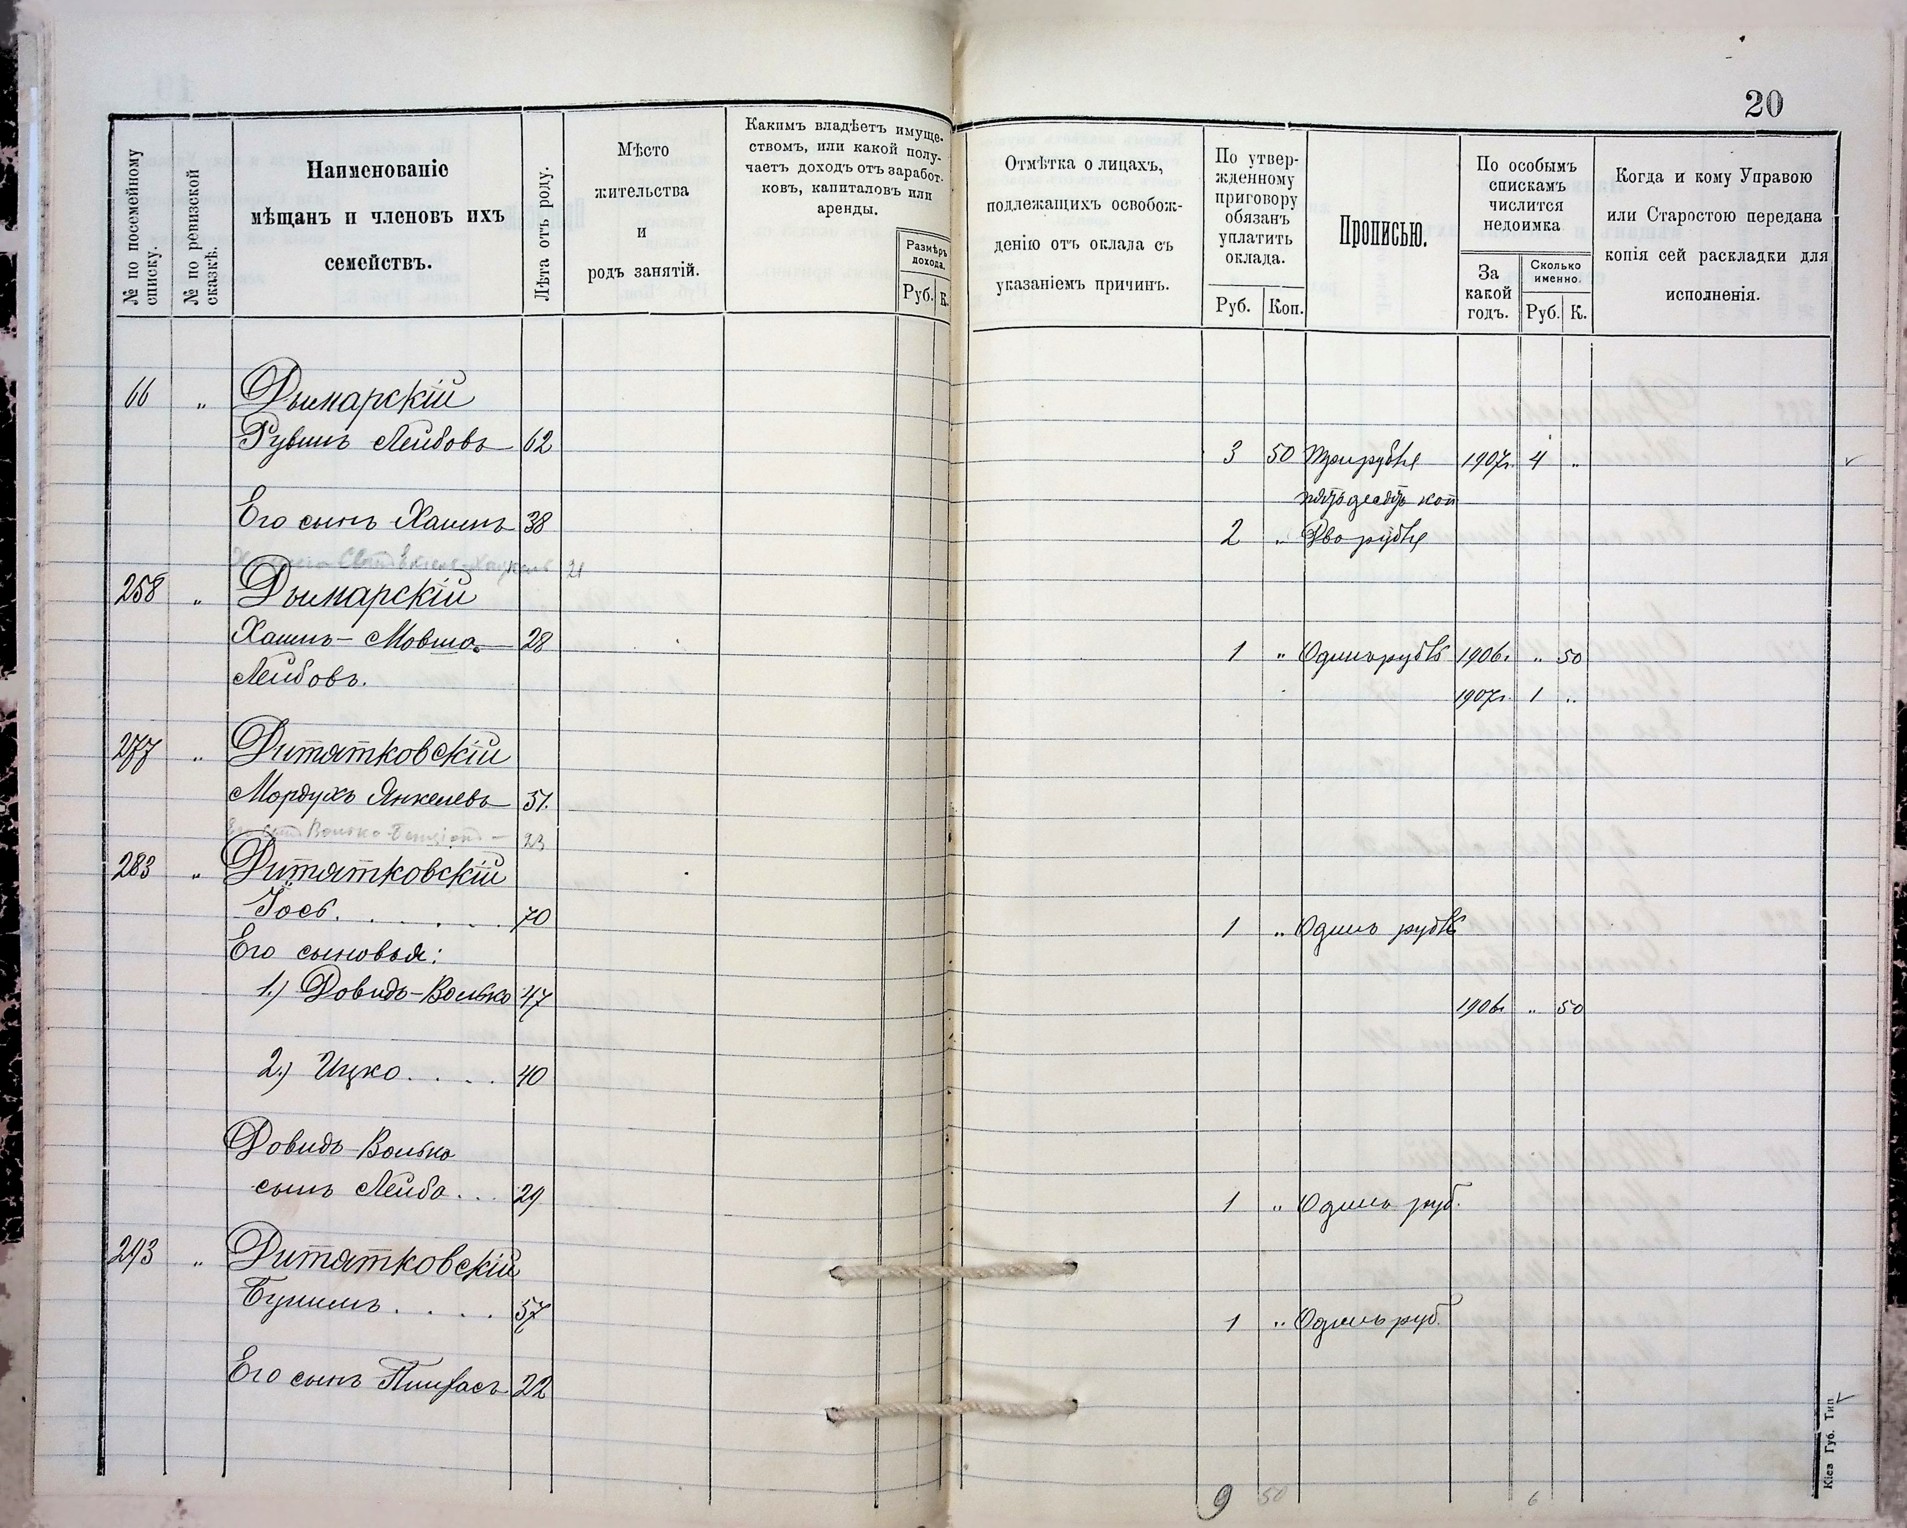 20
№ по посемейному списку.
№ по ревизской сказкѣ.
Наименованіе
мѣщанъ и членовъ ихъ
семействъ.
Лѣта отъ роду.
Мѣсто
жительства
и
родъ занятій.
Какимъ владѣетъ имуще-
ствомъ, или какой полу-
чаетъ доходъ отъ заработ-
ковъ, капиталовъ или
аренды.
Размѣръ
дохода.
Руб. К.
Отмѣтка о лицахъ,
подлежащихъ освобож-
денію отъ оклада съ
указаніемъ причинъ.
По утвер-
жденному
приговору
обязанъ
уплатить
оклада.
Руб. Коп.
Прописью.
По особымъ
спискамъ
числится
недоимка
За
какой
годъ.
Сколько
именно.
Руб. К.
Когда и кому Управою
или Старостою передана
копія сей раскладки для
исполненія.
66 „ Дымарскій
Рувинъ Лейбовъ 62 3 50 Три рубля 1907г. 4 „
пятьдесятъ коп
Его сынъ Хаимъ 38 2 „ Два рубля
21
258 „ Дымарскій
Хаимъ-Мовша 28 1 „ Одинъ рубль 1906г. „ 50
Лейбовъ. 1907г. 1 „
277 „ Дитятковскій
Мордухъ Янкелевъ 51.
Его сынъ Волько-Бенціонъ - 23
283 „ Дитятковскій
Іось. 70 1 „ Одинъ рубль
Его сыновья:
1.) Довидъ-Волько 47 1906г. „ 50
2.) Ицко.... 40
Довидъ-Волька
сынъ Лейба... 29 1 „ Одинъ руб.
293 „ Дитятковскій
Бунимъ.... 57 1 „ Одинъ руб.
Его сынъ Пинхасъ 22
9 50 6
Кіев Губ. Тип.